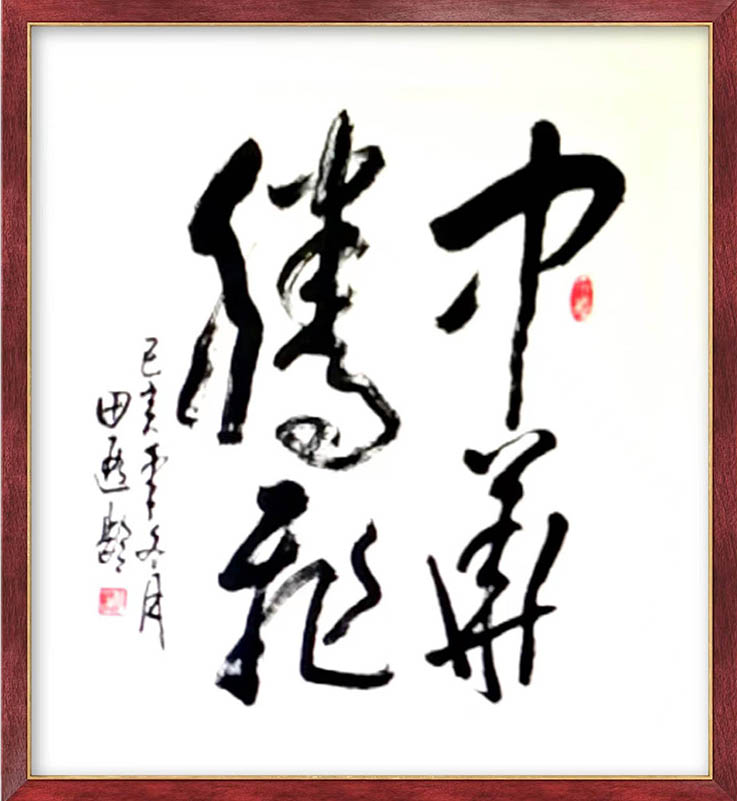 中華
騰飛
己亥年冬月
田